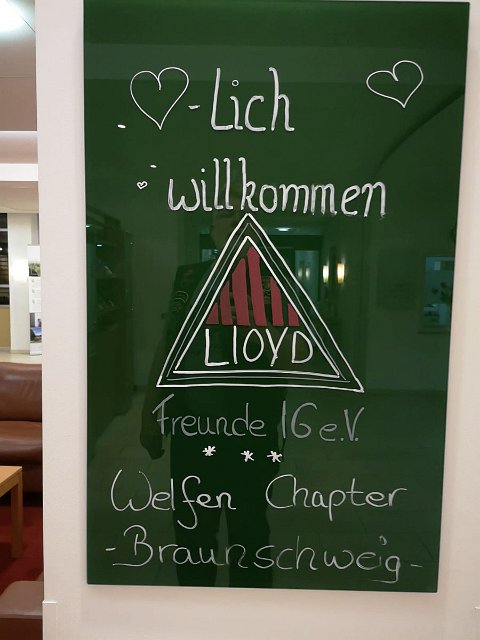 ♡-Lich
willkommen
LLOYD
Freunde IG e.V.
* * *
Welfen Chapter
-Braunschweig-